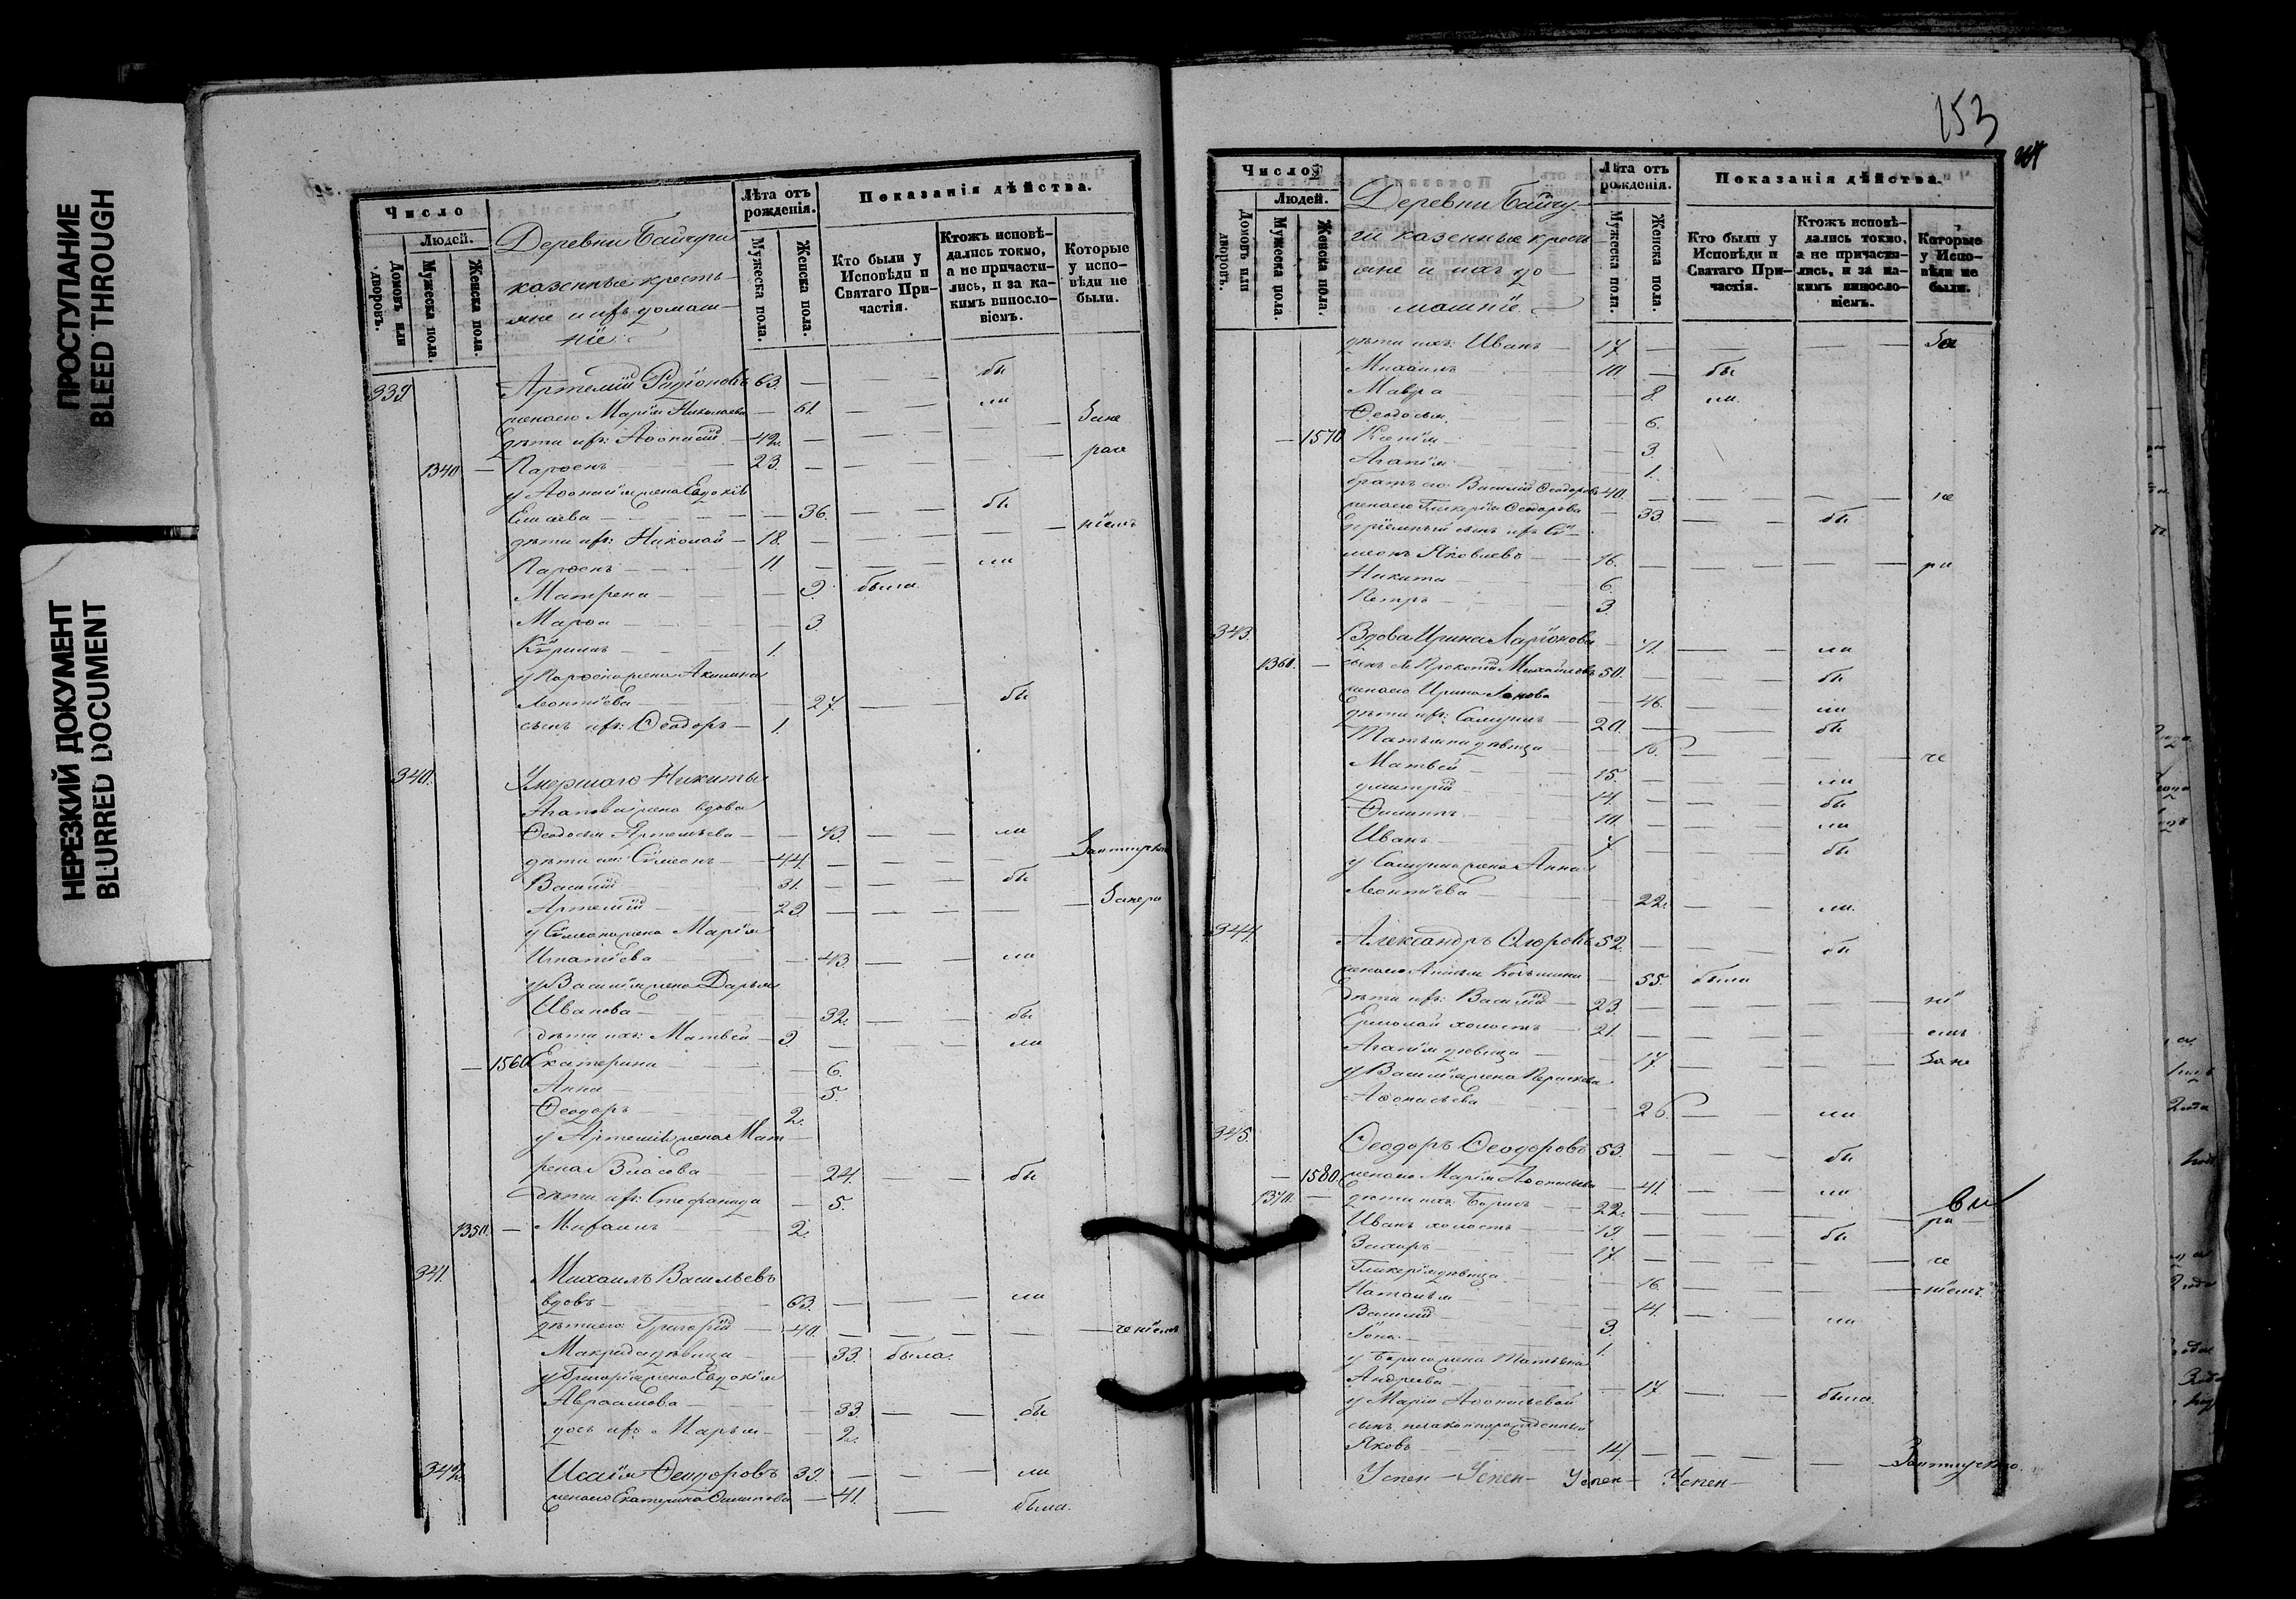 ПРОСТУПАНИЕ
BLEED THROUGH
НЕРЕЗКИЙ ДОКУМЕНТ
BLURRED DOCUMENT
Число
Людей.
Домовъ или дворовъ.
Мужеска пола.
Женска пола.
Деревни Байчуги
казенные кресть-
яне и ихъ домаш-
ніе
Лѣта отъ рожденія.
Мужеска пола.
Женска пола.
Показанія дѣйства.
Кто были у Исповѣди и Святаго При-частія.
Ктожъ исповѣ-дались токмо, а не причасти-лись, и за ка-кимъ винословіемъ.
Которые у испо-вѣди не были.
339. Артемій Родіоновъ 63. бы
жена его Марія Николаева 61. ли
дѣти ихъ: Афонасій 42. За не
1340 Парфенъ 23. раче
у Афонасія жена Евдокія
Елисеева 36. бы
дѣти ихъ: Николай 18. ніемъ
Парфенъ 11. ли
Матрена 9. была
Марфа 3.
Кѵрилъ 1.
у Парфена жена Акилина
Леонтіева 27. бы
сынъ ихъ: Феодоръ 1.
340. Умершаго Никиты
Агапова жена вдова
Феодосья Артемьева 43. ли
дѣти ея: Сѵмеонъ 44. За отлучкою
Василій 31. бы
Артемій 29. За нера
у Сѵмеона жена Марія
Игнатіева 43. ли
у Василія жена Дарья
Иванова 32. бы
дѣти ихъ: Матвей 9. ли
1560 Екатерина 6.
Анна 5.
Феодоръ 2.
у Артемія жена Мат
рена Власова 24. бы
дѣти ихъ: Стефанида 5.
1350. Михаилъ 2.
341. Михаилъ Васильевъ
вдовъ 63. ли
дѣти его: Григорій 40. ченіемъ
Макрида дѣвица 33. была.
у Григорія жена Евдокія
Авраамова 33. бы
дочь ихъ Марья 2.
342. Исаія Феодоровъ 39. ли
жена его Екатерина Филипова 41. была.
153
Число
Людей.
Домовъ или дворовъ.
Мужеска пола.
Женска пола.
Деревни Байчу
ги казенные кресть
яне и ихъ до
машніе
Лѣта отъ рожденія.
Мужеска пола.
Женска пола.
Показанія дѣйства.
Кто были у Исповѣди и Святаго При-частія.
Ктожъ исповѣ-дались токмо, а не причасти-лись, и за ка-кимъ винословіемъ.
Которые у Испо-вѣди не были.
дѣти ихъ: Иванъ 17. За
Михаилъ 10. бы
Мавра 8. ли.
Феодосья 6.
1570 Ксенія 3.
Агапія 1.
братъ его: Василій Феодоровъ 40. не
жена его Гликерія Феодорова 33. бы
пріемный сынъ ихъ Сѵ
меонъ Яковлевъ 16. ра
Никита 6.
Петръ 3.
343. Вдова Ирина Ларіонова 71. ли
1360. сынъ ея Прокопій Михайловъ 50. бы
жена его Ирина Іонова 46. ли
дѣти ихъ: Самуилъ 20. бы
Татьяна дѣвица 16. че
Матвей 15. ли
Димитрій 14. бы
Филиппъ 10. ли
Иванъ 7. бы
у Самуила жена Анна
Леонтіева 22. ли.
344. Александръ 52. бы
жена его Козьмина 55. были
дѣти ихъ: Василій 23. ні
Ермолай холостъ 21. емъ
Агапія дѣвица 17. За не
у Василія жена Параскева
Афонасьева 26. ли
345. Феодоръ Феодоровъ 53. бы
1580. жена его Марія Афонасьева 41. ли
1370. дѣти ихъ: Борисъ 22. ра
Иванъ холостъ 19. бы
Захаръ 17. че
Гликерія дѣвица 16. ніемъ
Наталья 14. ли
Василій 3.
Іона 1.
у Бориса жена Татьяна
Андреева 17. была.
у Маріи Афонасьевой
сынъ незаконнорожденный
Яковъ 14. За отлучкою.
Успен- Успен- Успен- Успен-